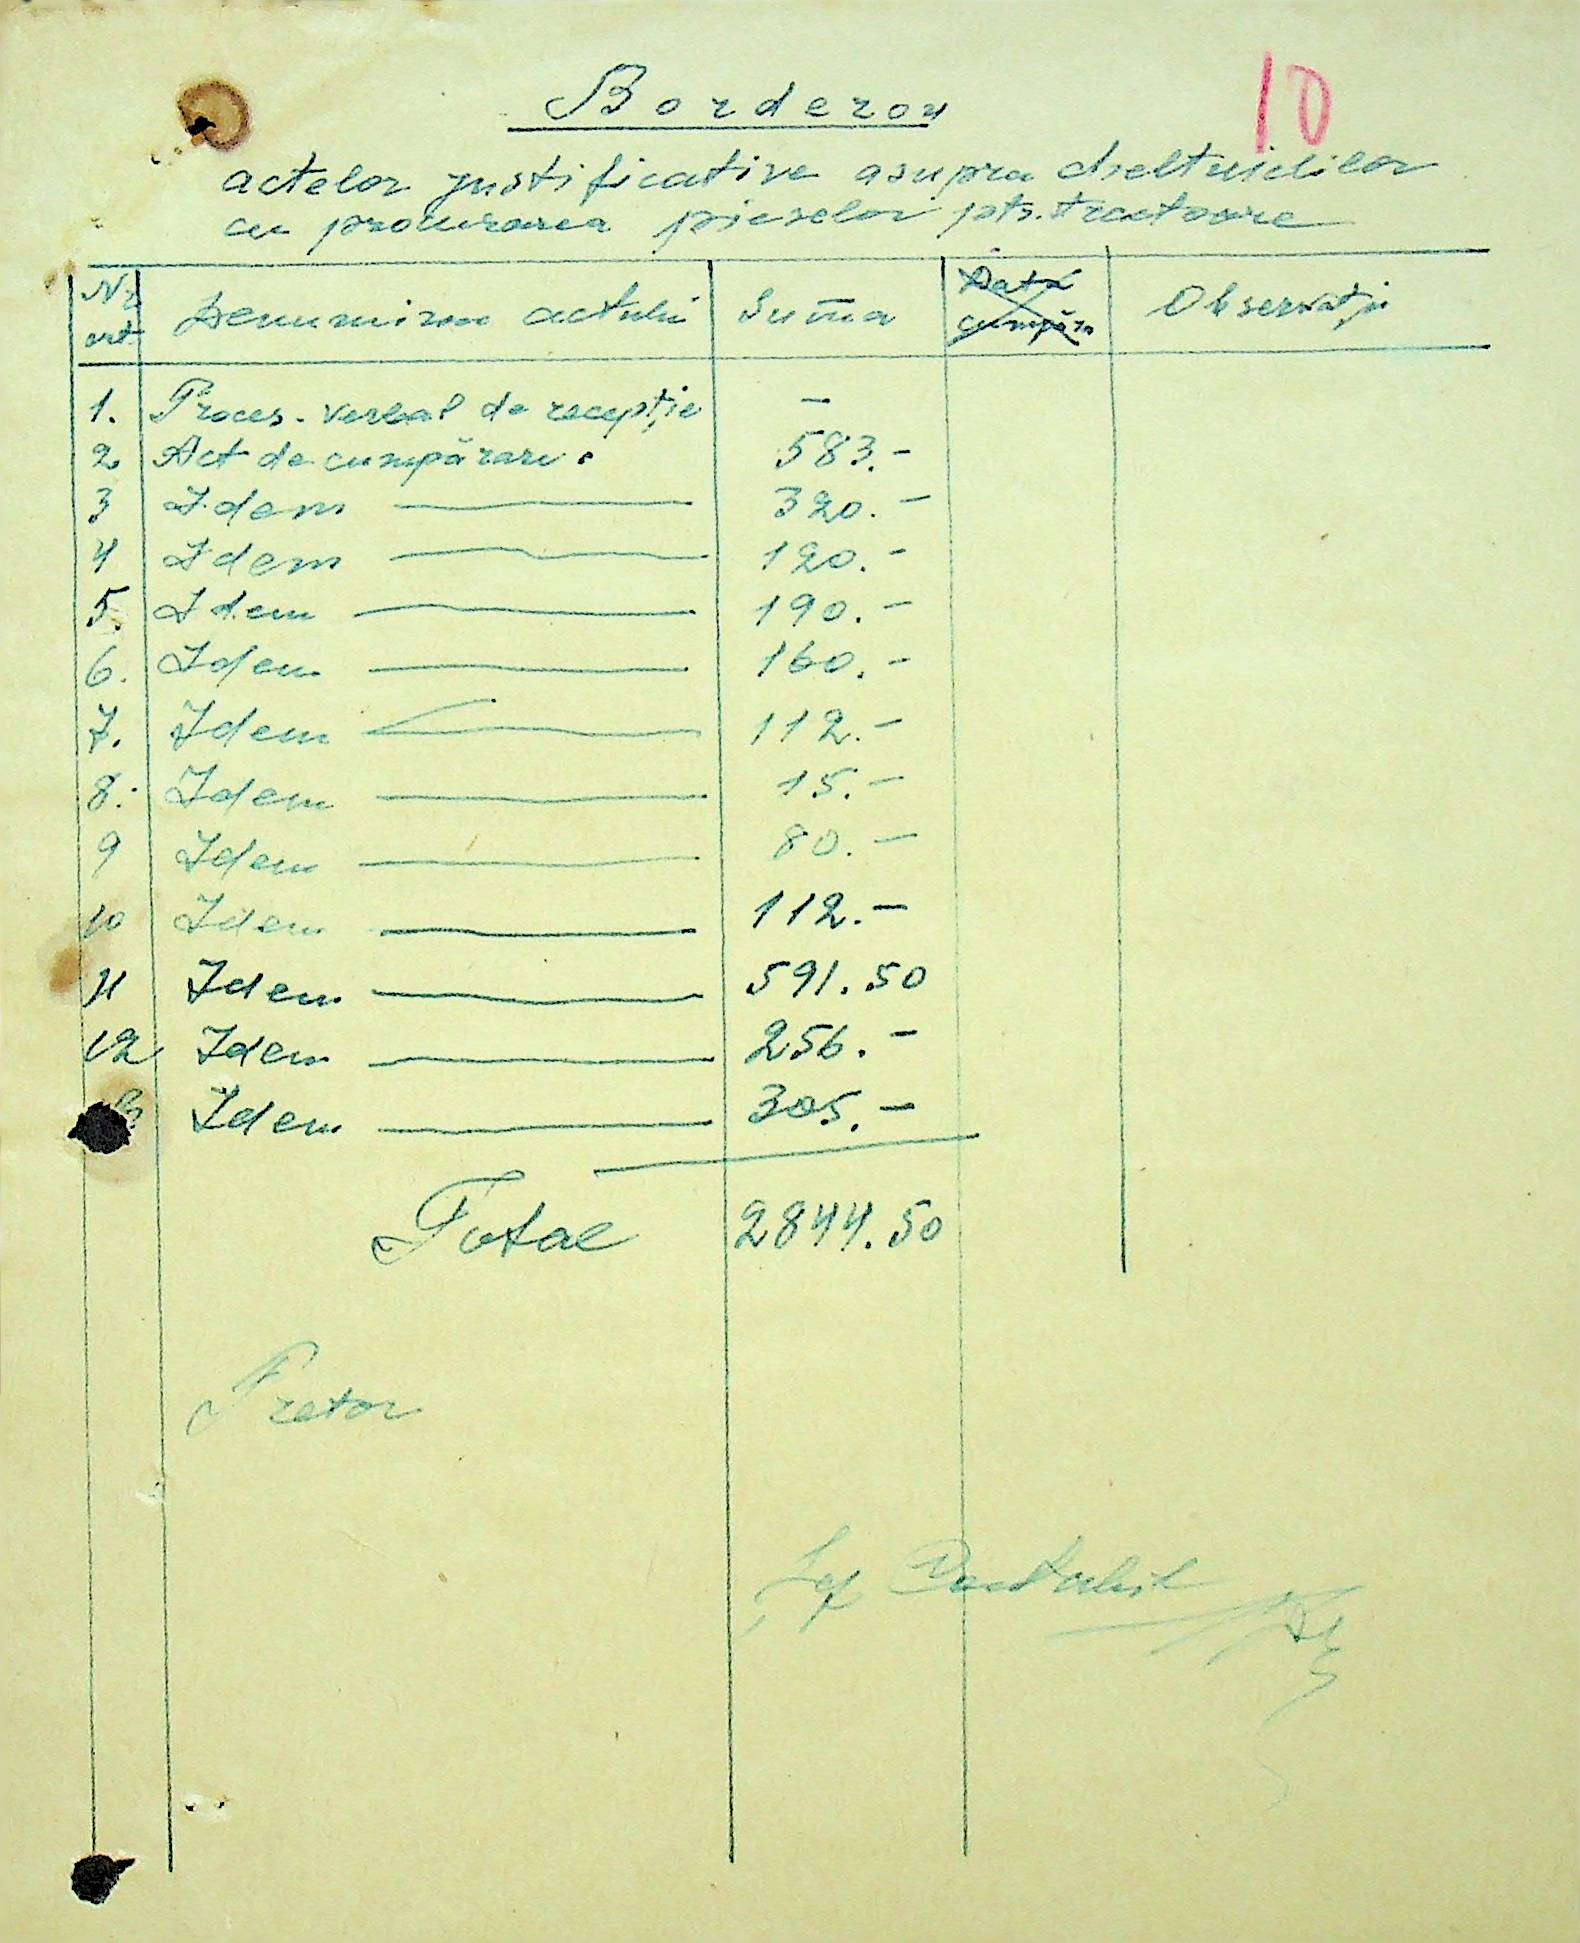 10
Borderou
actelor justificative asupra cheltuielilor
cu procurarea pieselor ptr. tractoare
Nr. crt. Denumirea actului Suma Data cumpăr. Observații
1. Proces-verbal de recepție –
2 Act de cumpărare 583.-
3 Idem 320.-
4 Idem 120.-
5. Idem 190.-
6. Idem 160.-
7. Idem 112.-
8. Idem 15.-
9 Idem 80.-
10 Idem 112.-
11 Idem 591.50
12 Idem 256.-
13 Idem 305.-
Total 2844.50
Pretor
Șef Contabil